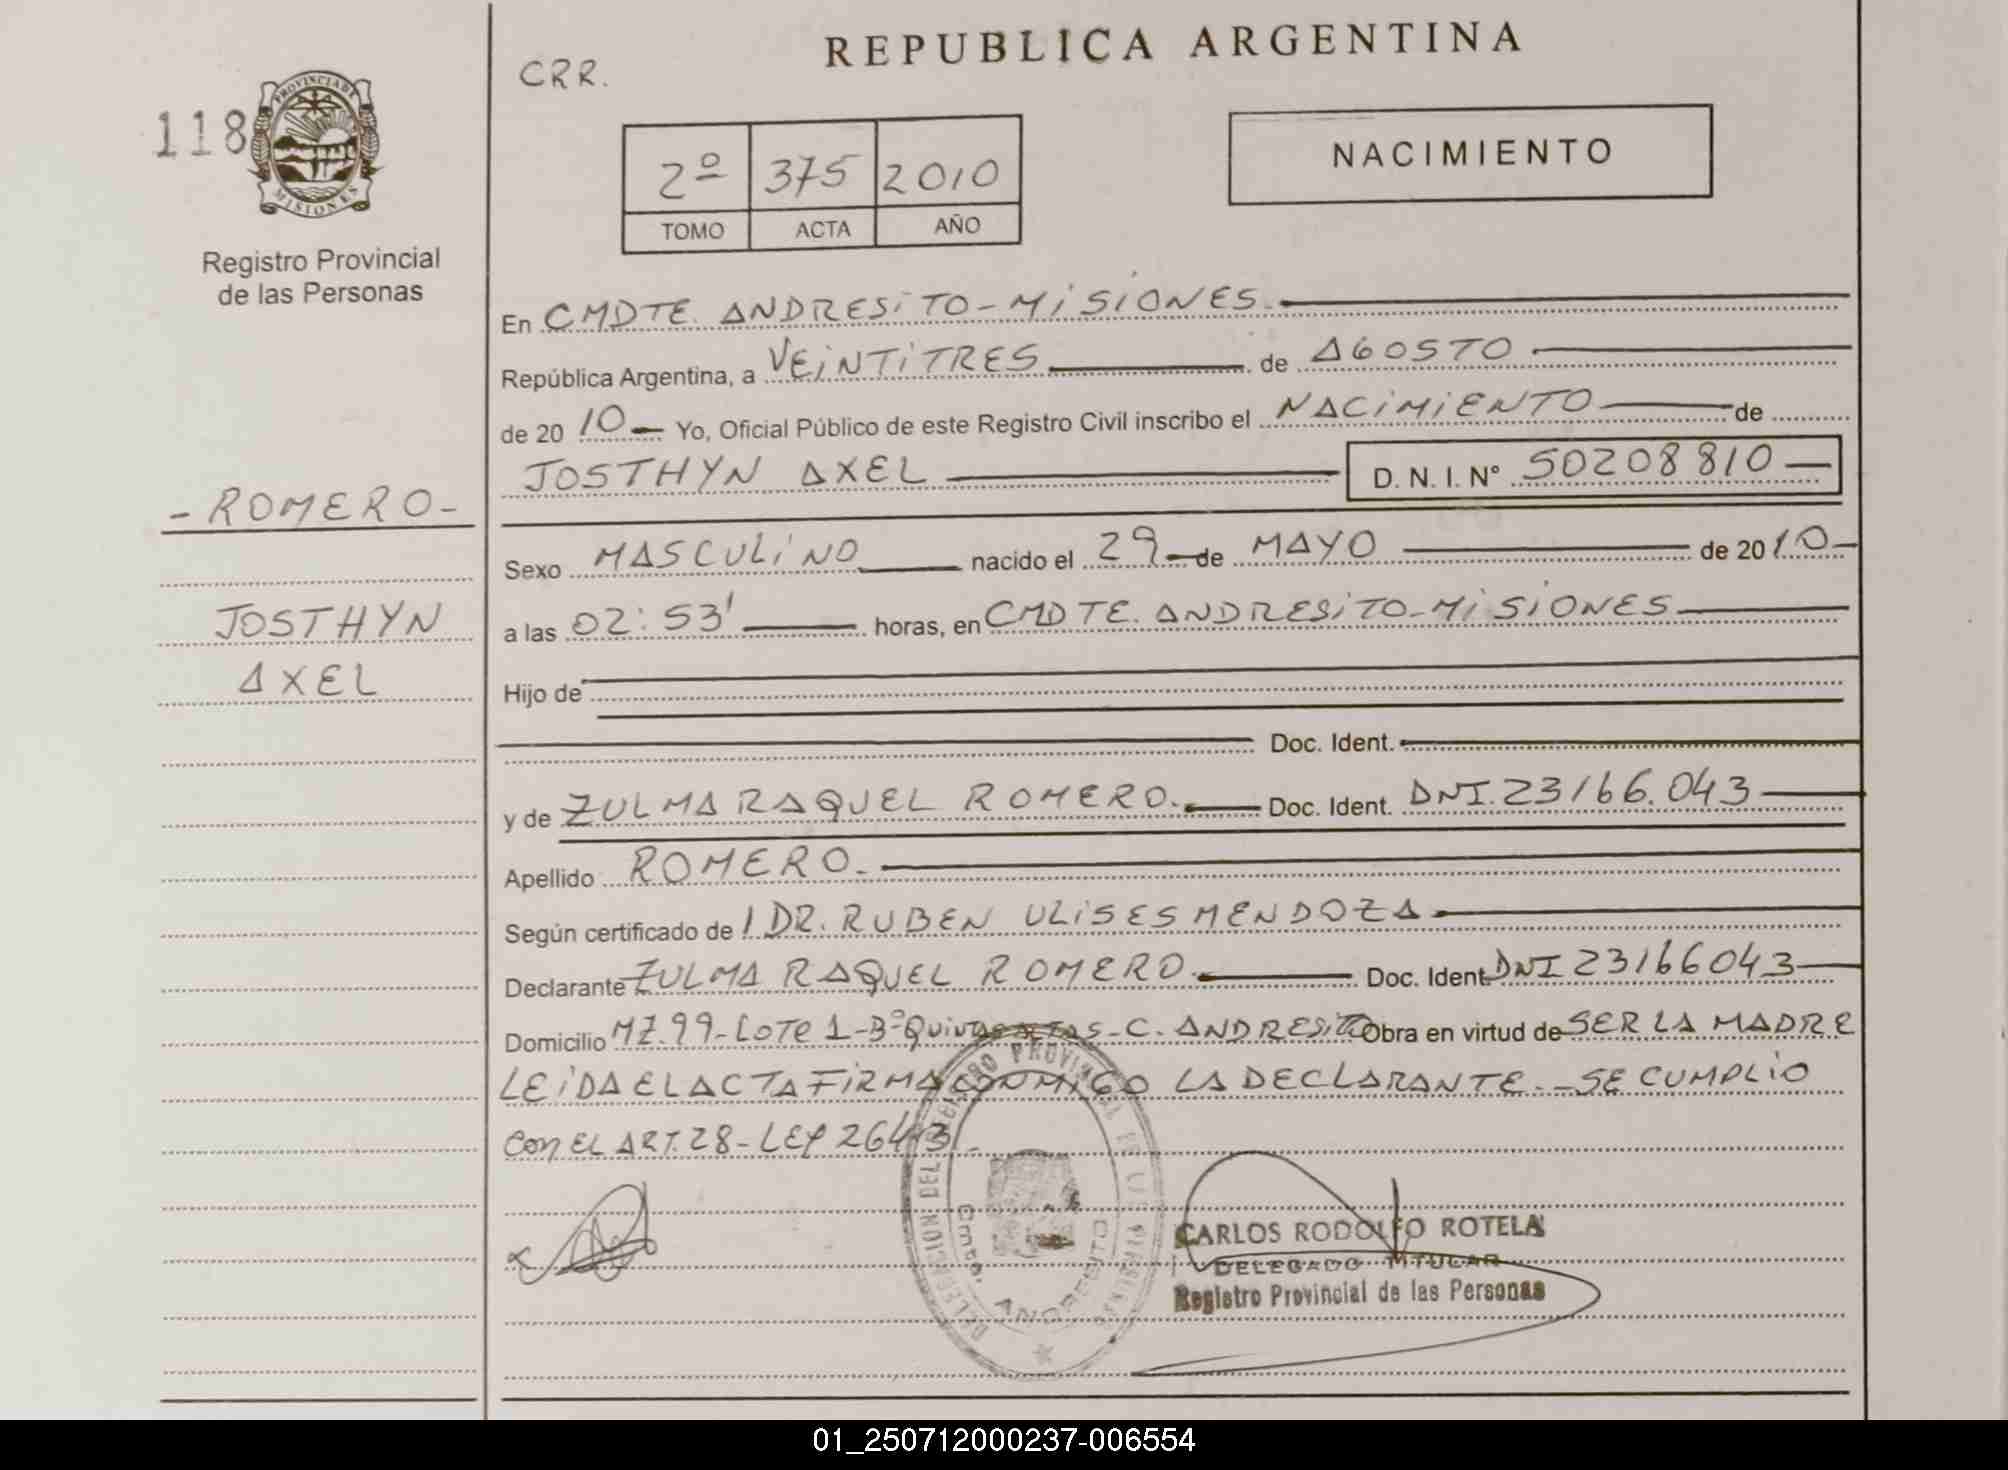 118
PROVINCIA DE
MISIONES
Registro Provincial
de las Personas
-ROMERO-
JOSTHYN
AXEL
CRR.
REPUBLICA ARGENTINA
2º 375 2010
TOMO ACTA AÑO
NACIMIENTO
En CMDTE. ANDRESiTO-MiSiONES.
República Argentina, a VEiNTiTRES de AGOSTO
de 2010 Yo, Oficial Público de este Registro Civil inscribo el NACiMiENTO de
JOSTHYN AXEL D. N. I. Nº 50208810
Sexo MASCULiNO nacido el 29 de MAYO de 2010
a las 02:53' horas, en CMDTE. ANDRESiTO-MiSiONES
Hijo de
Doc. Ident.
y de ZULMA RAQUEL ROMERO. Doc. Ident. DNI.23166.043
Apellido ROMERO.
Según certificado de / DR. RUBEN ULiSES MENDOZA
Declarante ZULMA RAQUEL ROMERO. Doc. Ident. DNI 23166043
Domicilio MZ.99-LOTE 1-Bº QUiNTAS-C. ANDRESiTO Obra en virtud de SER LA MADRE
LEiDA EL ACTA FiRMA CONMiGO LA DECLARANTE.-SE CUMPLiO
CON EL ART.28-LEY 26413.-
DELEGACION DEL REGISTRO PROVINCIAL DE LAS PERSONAS
Cmte. ANDRESITO
CARLOS RODOLFO ROTELA
DELEGADO TITULAR
Registro Provincial de las Personas
01_250712000237-006554